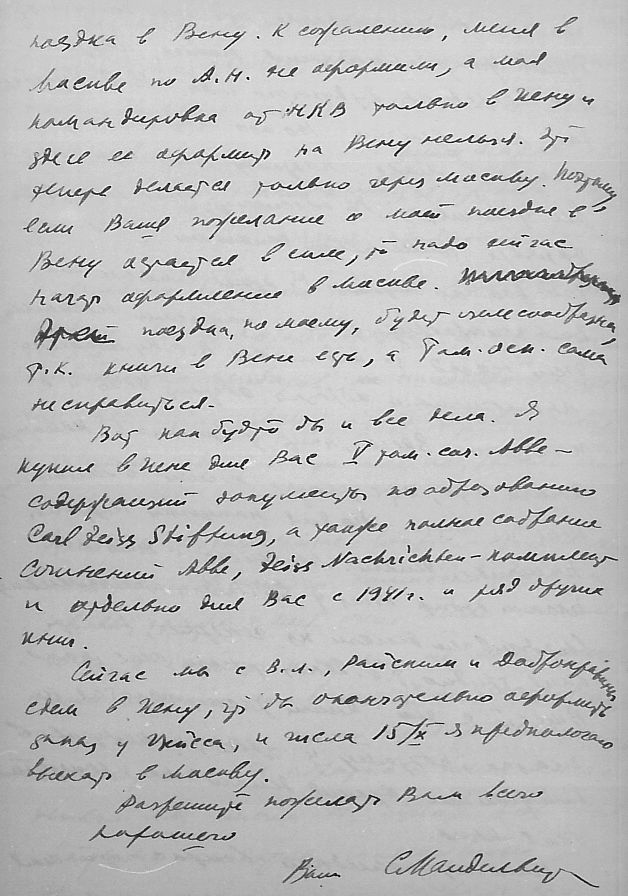 поездка в Вену. К сожалению, меня в
Москве по А.Н. не оформили, а моя
командировка от НКВ только в Йену и
здесь ее оформить на Вену нельзя. Это
теперь делается только через Москву. Поэтому
если Ваше пожелание о моей поездке в
Вену остается в силе, то надо сейчас
начать оформление в Москве.
поездка, по моему, будет целесообразна,
т.к. книги в Вене есть, а Там. сама
не справиться.
Вот как будто бы и все дела. Я
купил в Йене для Вас V том. соч. Аббе –
содержащий документы по образованию
Carl Zeiss Stiftung, а также полное собрание
сочинений Abbe, Zeiss Nachrichten – комплект
и отдельно для Вас с 1941 г. и ряд других
книг.
Сейчас мы с В.Л., Райским и Добронравовым
едем в Йену, что бы окончательно оформить
заказ у Цейсса, и числа 15/IX я предполагаю
выехать в Москву.
Разрешите пожелать Вам всего
хорошего
Ваш С Мандельштам